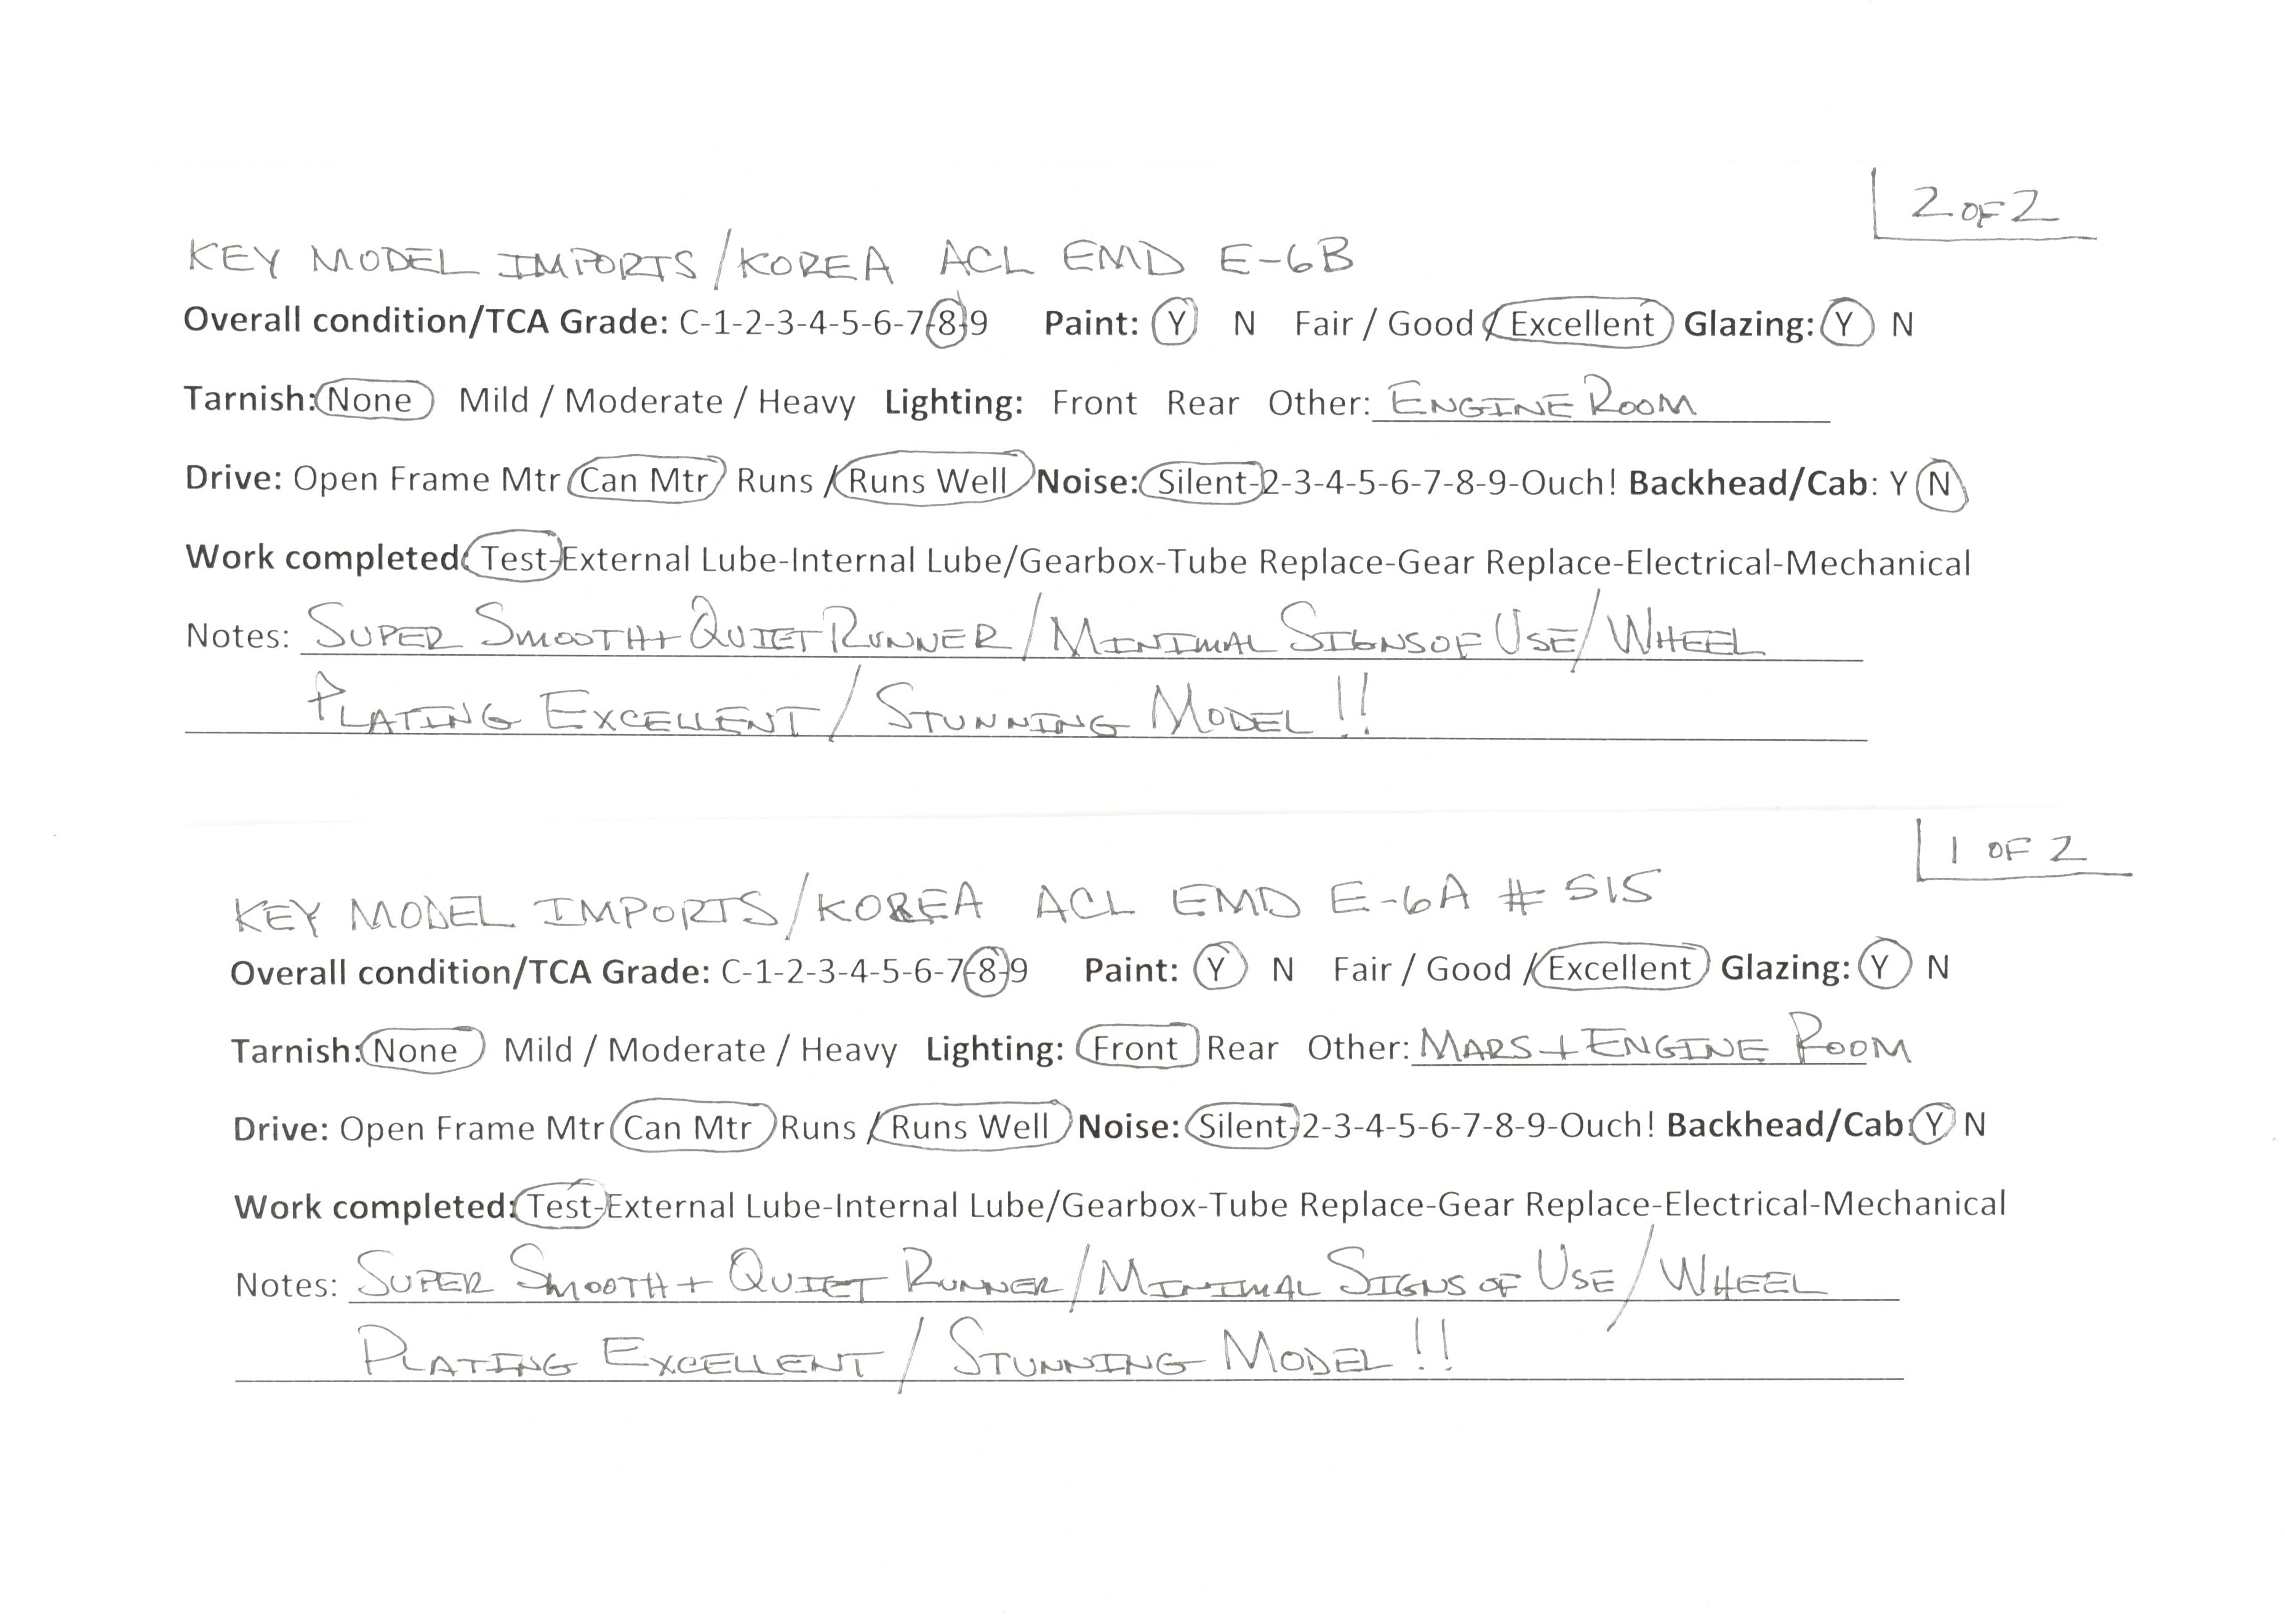 2 OF 2
KEY MODEL IMPORTS/KOREA ACL EMD E-6B
Overall condition/TCA Grade: C-1-2-3-4-5-6-7-8-9 Paint: Y N Fair / Good / Excellent Glazing: Y N
Tarnish: None Mild / Moderate / Heavy Lighting: Front Rear Other: ENGINE ROOM
Drive: Open Frame Mtr Can Mtr Runs / Runs Well Noise: Silent-2-3-4-5-6-7-8-9-Ouch! Backhead/Cab: Y N
Work completed: Test-External Lube-Internal Lube/Gearbox-Tube Replace-Gear Replace-Electrical-Mechanical
Notes: SUPER SMOOTH + QUIET RUNNER/MINIMAL SIGNS OF USE/WHEEL
PLATING EXCELLENT/STUNNING MODEL!!
1 OF 2
KEY MODEL IMPORTS/KOREA ACL EMD E-6A # 515
Overall condition/TCA Grade: C-1-2-3-4-5-6-7-8-9 Paint: Y N Fair / Good / Excellent Glazing: Y N
Tarnish: None Mild / Moderate / Heavy Lighting: Front Rear Other: MARS + ENGINE ROOM
Drive: Open Frame Mtr Can Mtr Runs / Runs Well Noise: Silent-2-3-4-5-6-7-8-9-Ouch! Backhead/Cab: Y N
Work completed: Test-External Lube-Internal Lube/Gearbox-Tube Replace-Gear Replace-Electrical-Mechanical
Notes: SUPER SMOOTH + QUIET RUNNER/MINIMAL SIGNS OF USE/WHEEL
PLATING EXCELLENT/STUNNING MODEL!!